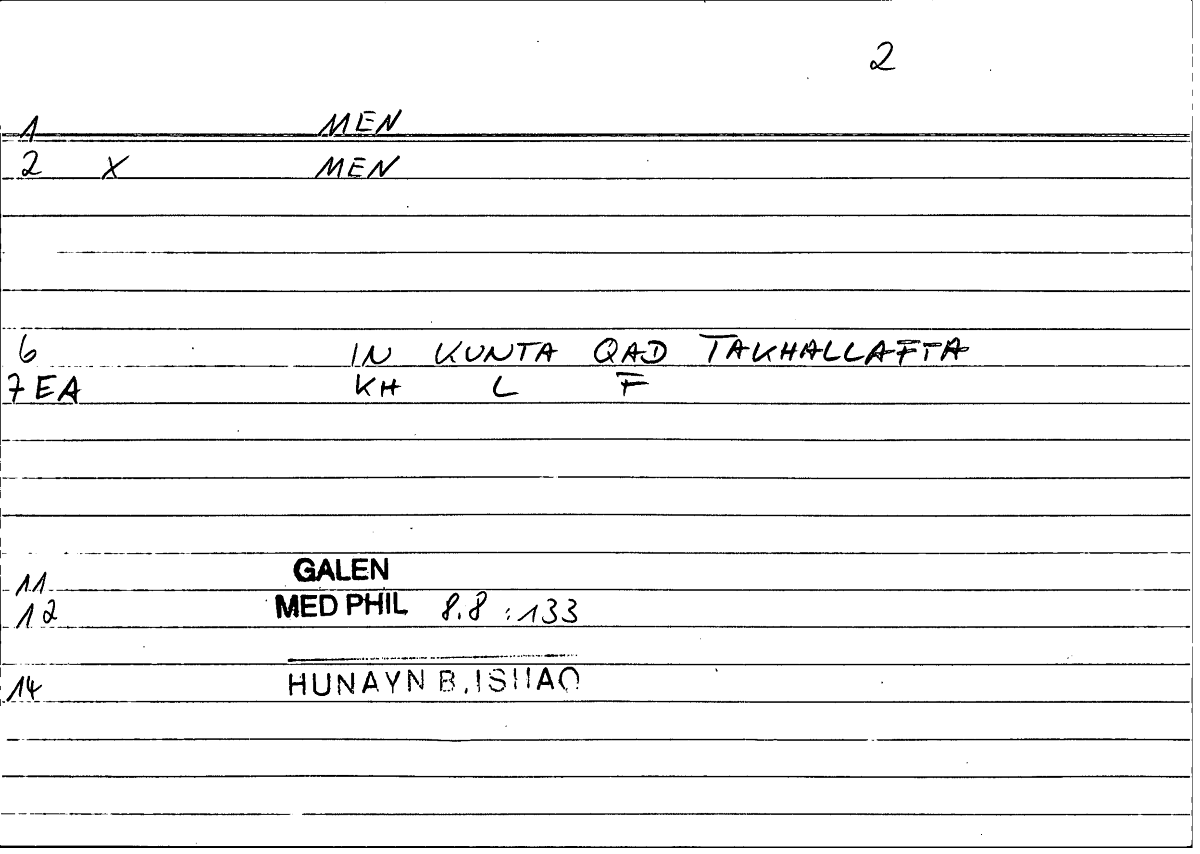 2
1 MEN
2 X MEN
6 IN KUNTA QAD TAKHALLAFTA
7 EA KH L F
11 GALEN
12 MED PHIL 8.8 : 133
14 HUNAYN B. ISHAQ